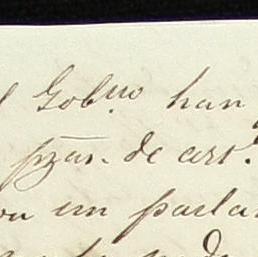 l Gob.no han
pzas. de art.
un parla